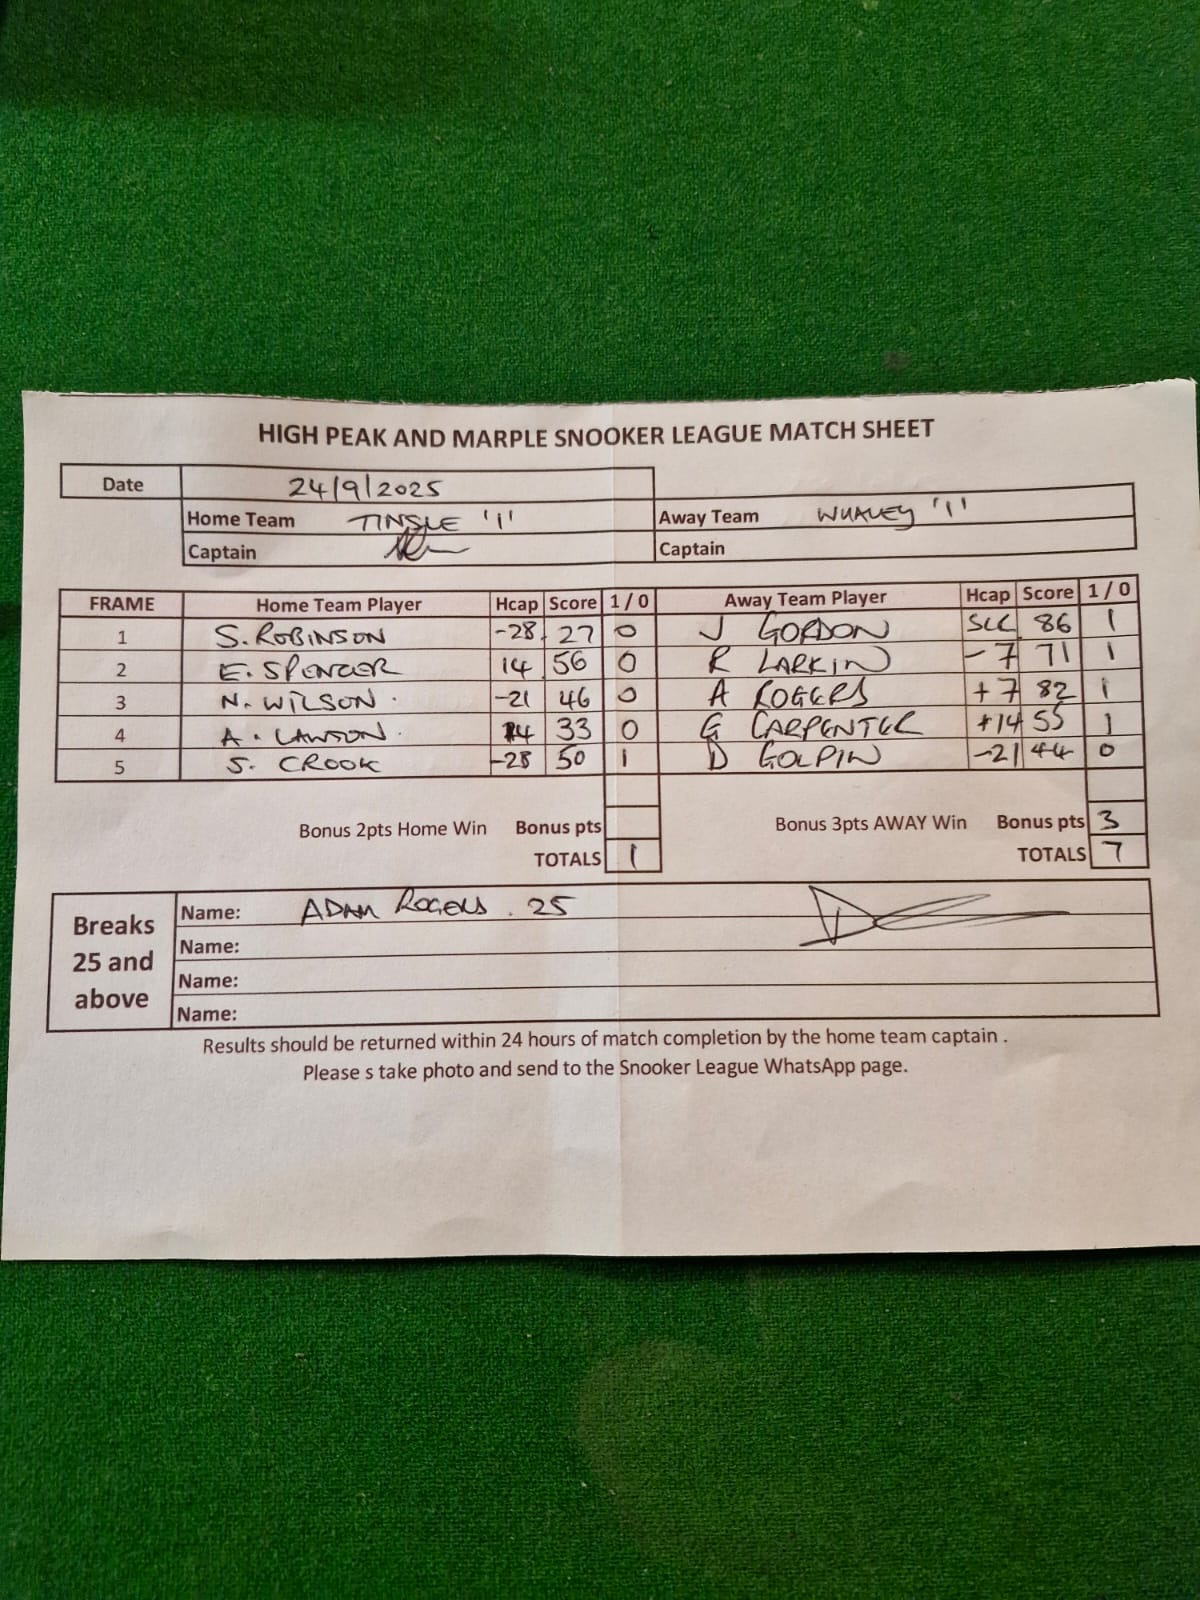 HIGH PEAK AND MARPLE SNOOKER LEAGUE MATCH SHEET
Date 24/9/2025
Home Team TINSLE '1' Away Team WHALEY '1'
Captain Captain
FRAME Home Team Player Hcap Score 1 / 0 Away Team Player Hcap Score 1 / 0
1 S. ROBINSON -28 27 0 J GORDON SCC 86 1
2 E. SPENCER 14 56 0 R LARKIN -7 71 1
3 N. WILSON. -21 46 0 A ROGERS +7 82 1
4 A. LAWSON. 14 33 0 G CARPENTER +14 55 1
5 S. CROOK -28 50 1 D GOLPIN -21 44 0
Bonus 2pts Home Win Bonus pts Bonus 3pts AWAY Win Bonus pts 3
TOTALS 1 TOTALS 7
Breaks 25 and above
Name: ADAM ROGERS. 25
Name:
Name:
Name:
Results should be returned within 24 hours of match completion by the home team captain .
Please s take photo and send to the Snooker League WhatsApp page.